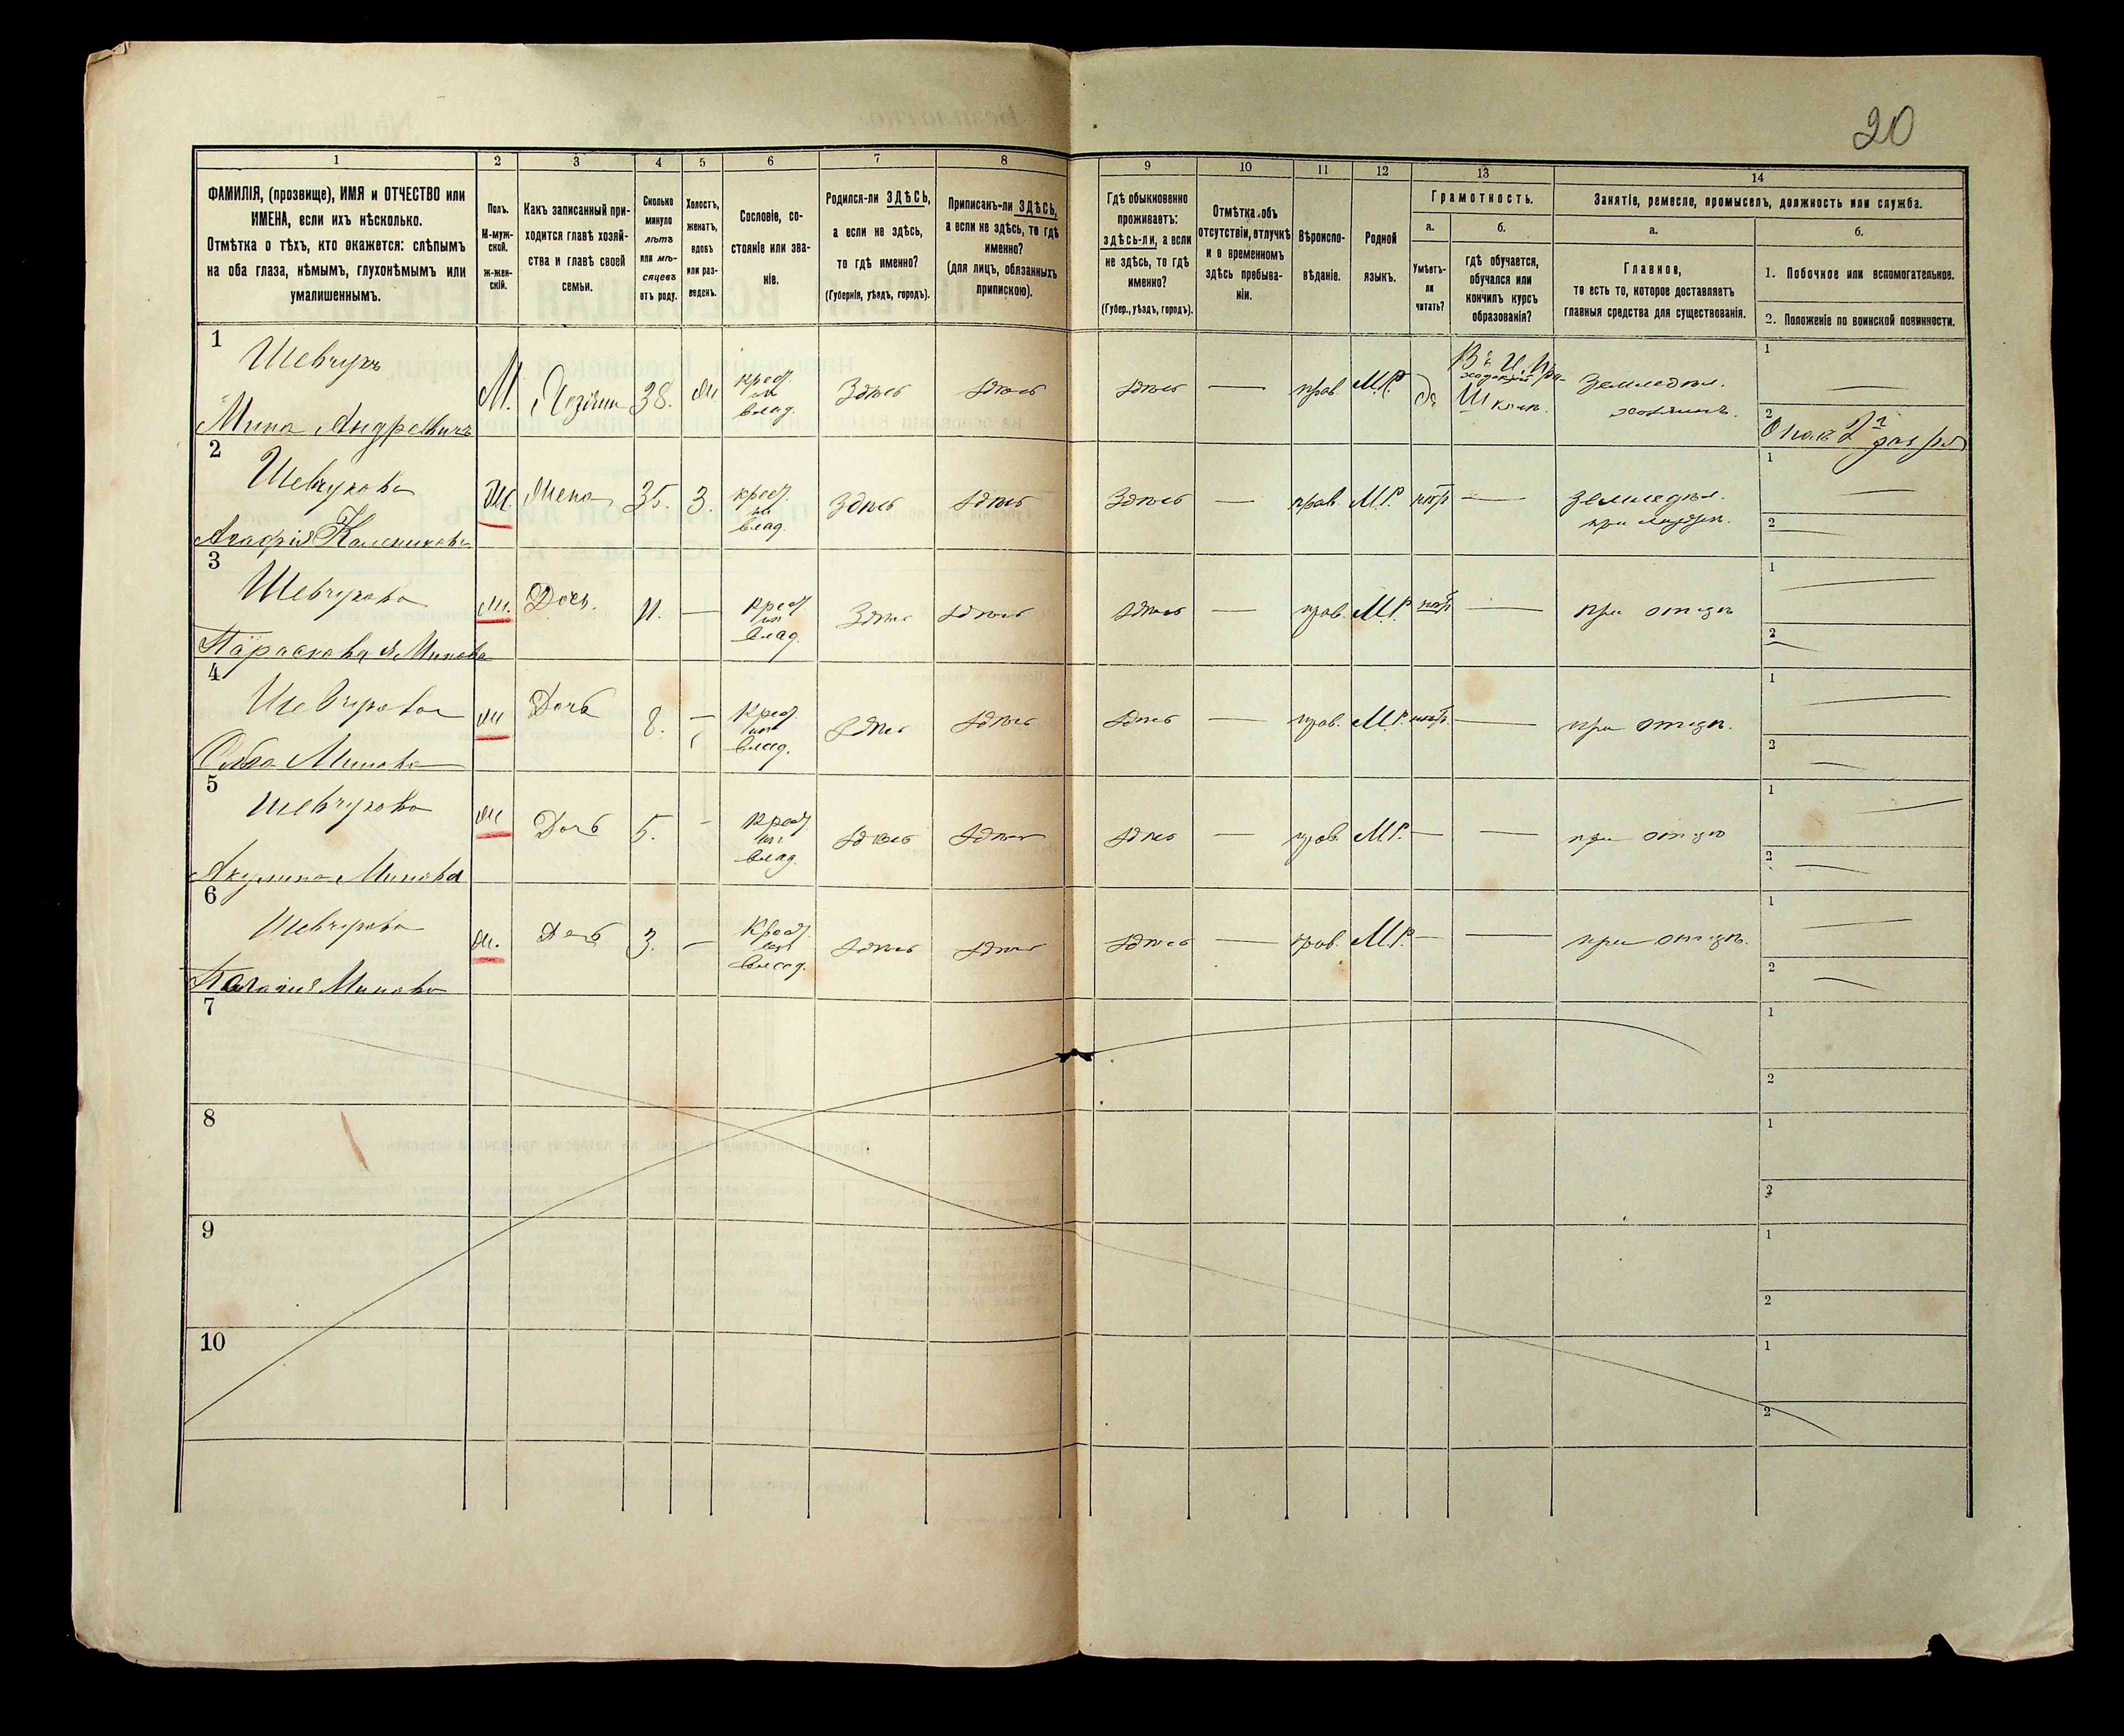 20
1 2 3 4 5 6 7 8 9 10 11 12 13 14
ФАМИЛІЯ, (прозвище), ИМЯ и ОТЧЕСТВО или
ИМЕНА, если ихъ нѣсколько.
Отмѣтка о тѣхъ, кто окажется: слѣпымъ
на оба глаза, нѣмымъ, глухонѣмымъ или
умалишеннымъ.
Полъ.
М-муж-
ской.
Ж-жен-
скій.
Какъ записанный при-
ходится главѣ хозяй-
ства и главѣ своей
семьи.
Сколько
минуло
лѣтъ
или мѣ-
сяцевъ
отъ роду.
Холостъ,
женатъ,
вдовъ
или раз-
веденъ.
Сословіе, со-
стояніе или зва-
ніе.
Родился-ли ЗДѢСЬ,
а если не здѣсь,
то гдѣ именно?
(Губернія, уѣздъ, городъ).
Приписанъ-ли ЗДѢСЬ,
а если не здѣсь, то гдѣ
именно?
(для лицъ, обязанныхъ
припискою).
Гдѣ обыкновенно
проживаетъ:
ЗДѢСЬ-ЛИ, а если
не здѣсь, то гдѣ
именно?
(Губер., уѣздъ, городъ).
Отмѣтка объ
отсутствіи, отлучкѣ
и о временномъ
здѣсь пребыва-
ніи.
Вѣроиспо-
вѣданіе.
Родной
языкъ.
Грамотность.
а.
Умѣетъ-
ли
читать?
б.
гдѣ обучается,
обучался или
кончилъ курсъ
образованія?
Занятіе, ремесло, промыселъ, должность или служба.
а.
Главное,
то есть то, которое доставляетъ
главныя средства для существованія.
б.
1. Побочное или вспомогательное.
2. Положеніе по воинской повинности.
1
Шевчукъ
Мина Андреевичъ
М. 38. крест. влад. Здѣсь здѣсь здѣсь — прав М.Р. да
Школ.
Земледѣл.
хозяинъ.
1 —
2
2
Шевчукова
Калениковна
Ж. Жена 35. З. крест. влад. Здѣсь здѣсь Здѣсь — прав. М.Р. —
земледѣл.
при
1 —
2 —
3
Шевчукова
Параскевия Минова
Ж. Дочь. 11. — крест влад. Здѣсь здѣсь здѣсь — прав. М.Р. — при отцѣ
1 —
2 —
4
Шевчукова
Минова
Ж Дочь 8. — Крест влад. здѣсь здѣсь здѣсь — прав. М.Р. — при отцѣ.
1 —
2 —
5
Шевчукова
Акулина Минова
Ж Дочь 5. - Крест влад. здѣсь здѣсь здѣсь — прав. М.Р. — — при отцѣ
1 —
2 —
6
Шевчукова
Минова
Ж. Дочь 3. — Крест. влад. здѣсь здѣсь здѣсь — прав. М.Р. — — при отцѣ.
1 —
2 —
7
1
2
8
1
2
9
1
2
10
1
2